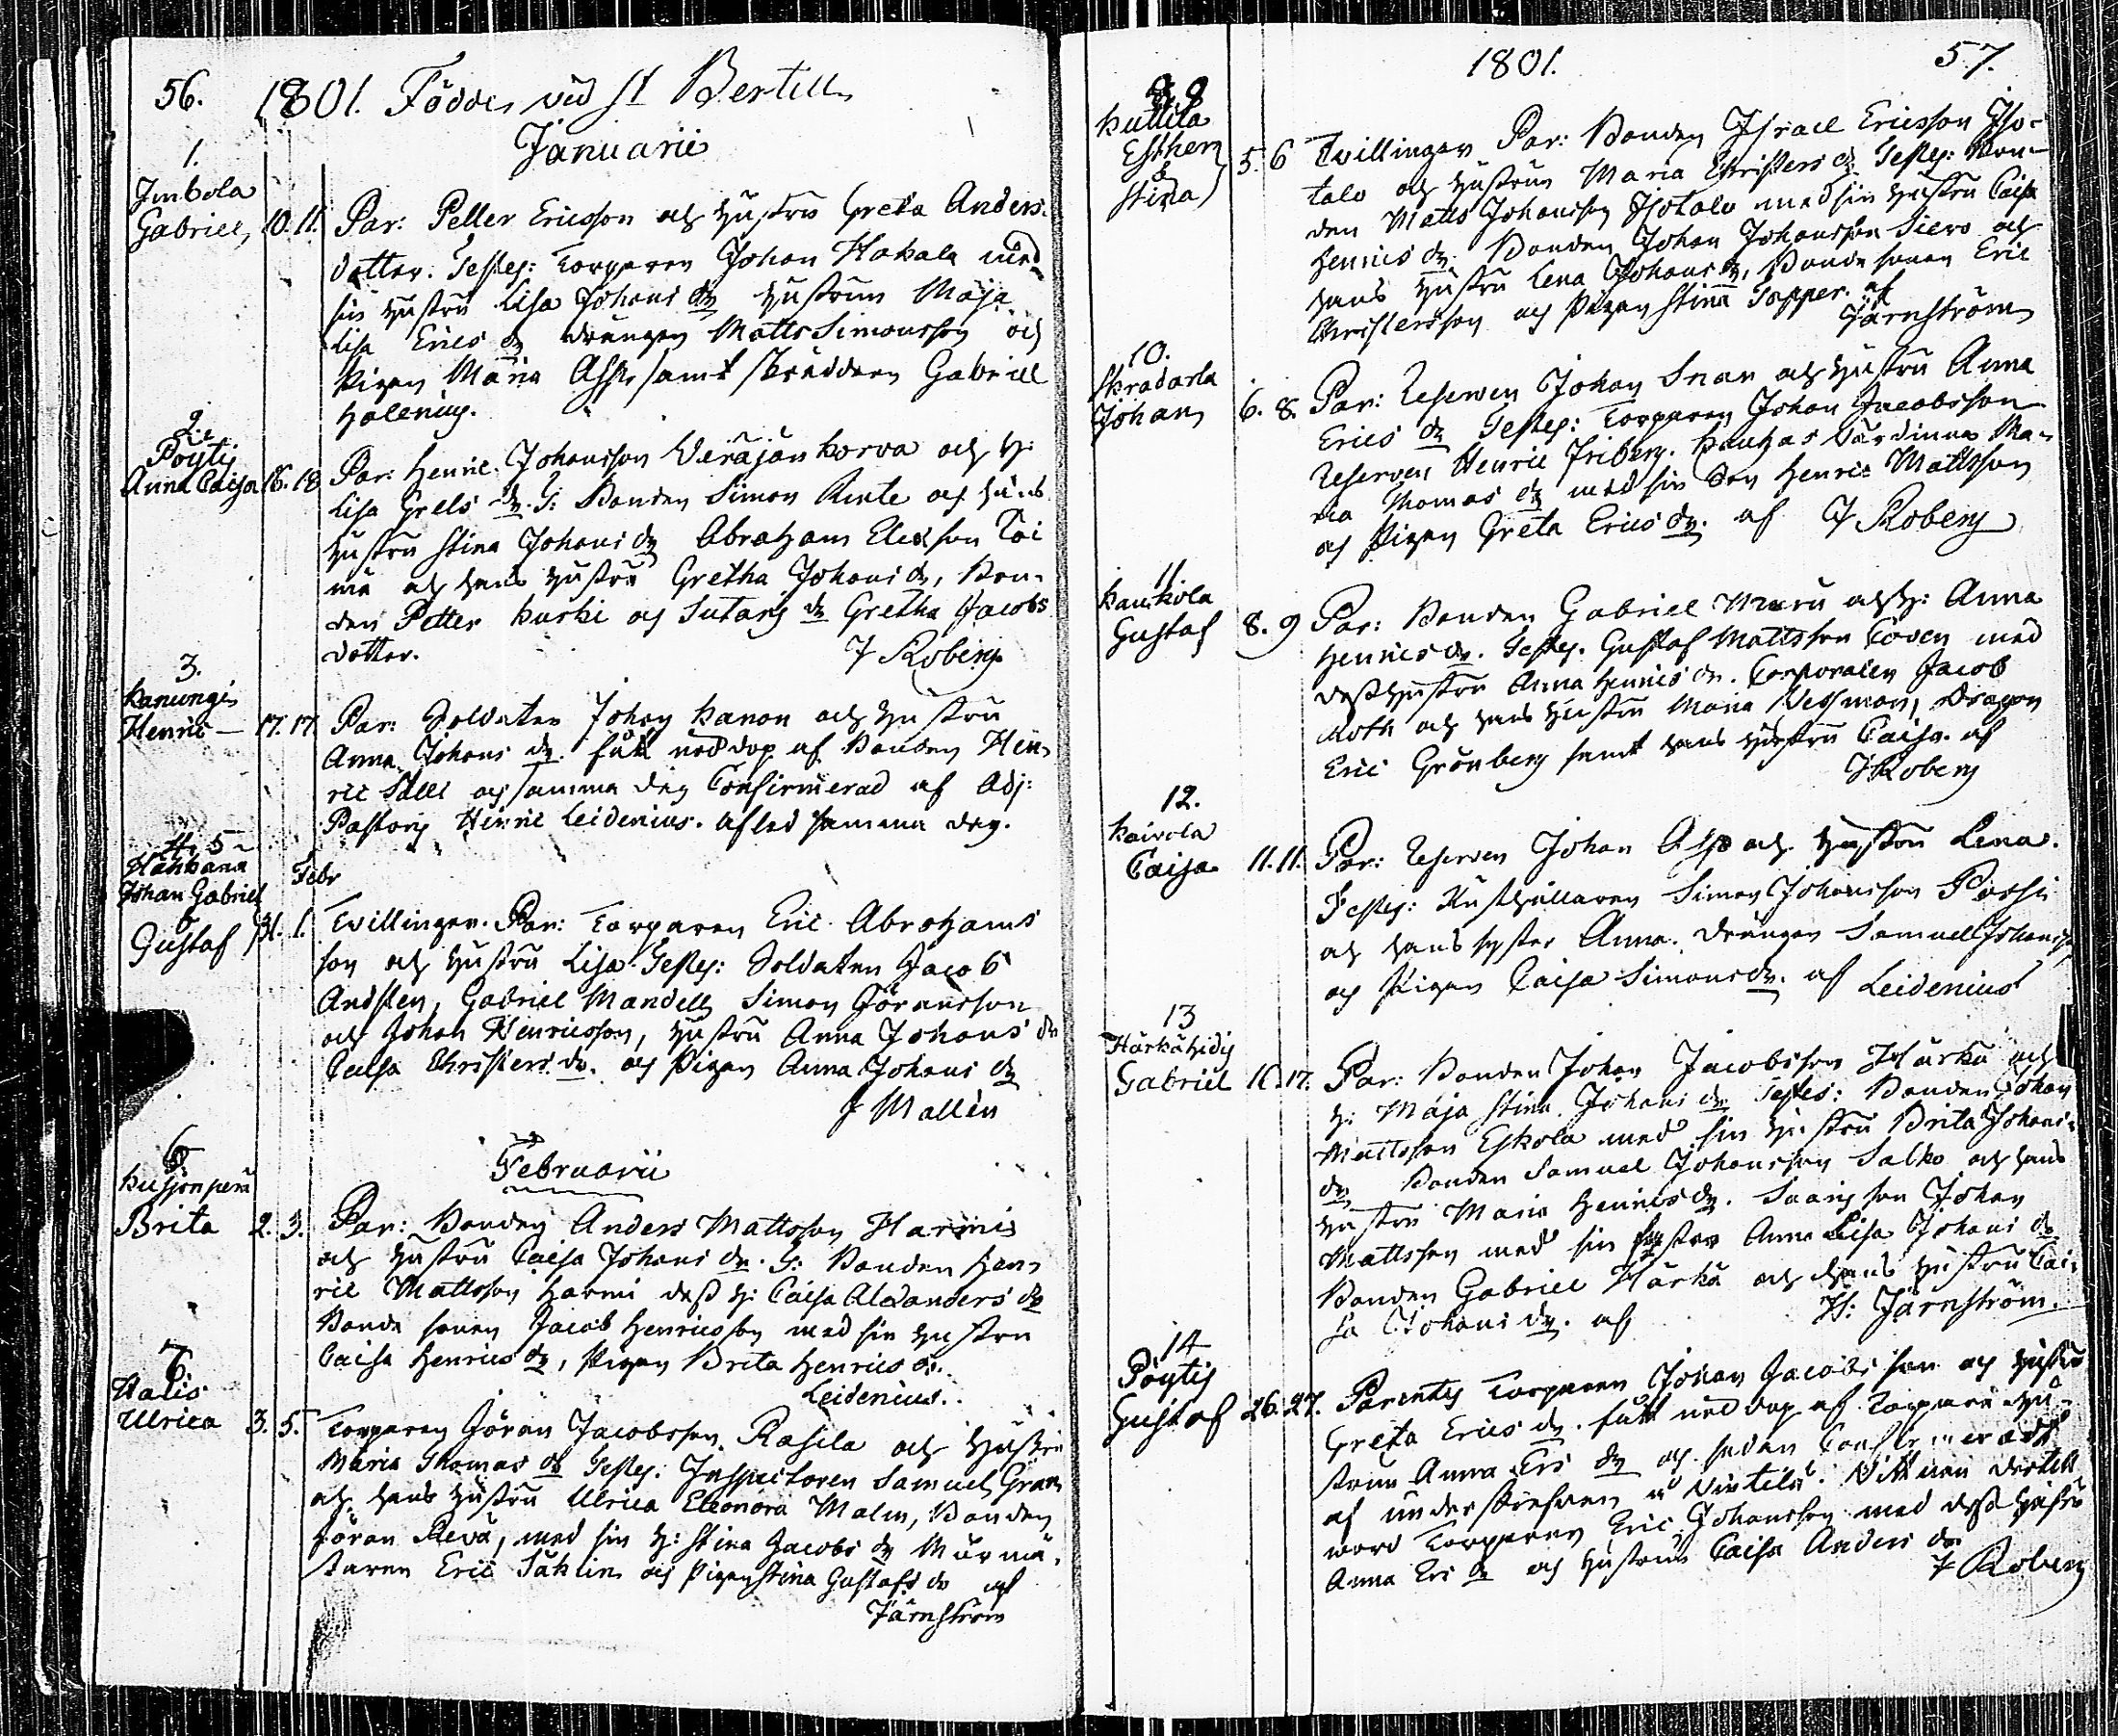 56.
1801. Födde vid St Bertills
Januarii
1.
Junbola
Gabriel, 10. 11.
Par: Petter Ericsson och hustru Greta Anders-
dotter. Testes: Torparen Johan Hakala med
sin hustru Lisa Johans dr hustrun Maja
Lisa Erics dr drängen Matts Simonsson och
Pigan Maria samt skräddern Gabriel
Holenius.
2.
Pöytis
Anna Caisa 16. 18
Par: Henric Johansson Veräjänkorva och h:
Lisa Grels dr. T: Bonden Simon och hans
hustru Stina Johans dr Abraham
och hans hustru Gretha Johans dr, Bon-
den Petter Kurki och dr Gretha Jacobs
dotter.
J Roberg
3.
Kanungis
Henric — 17. 17.
Par: Soldaten Johan Kanon och hustru
Anna Johans dr. fått nöddop af Bonden Hen-
ric och samma dag Confirmerad af Adj:
Pastoris Henric Leidenius. afled samma dag.
4, 5
Hähkänä
Johan Gabriel
&
Gustaf
Febr
31. 1.
Twillingar. Par: Torparen Eric Abrahams
son och hustru Lisa. Testes: Soldaten Jacob
Andsten, Gabriel Mandell Simon Göransson
och Johan Henricsson, hustru Anna Johans dr
Caisa Christers dr. och Pigan Anna Johans dr
J Mallén
Februarii
6
Kusjonperä
Brita 2. 3.
Par: Bonden Anders Mattsson Harmis
och hustru Caisa Johans dr. T: Bonden Hen-
ric Mattsson Harmi dess h: Caisa Alexanders dr
Bonde sonen Jacob Henricsson med sin hustru
Caisa Henrics dr, Pigan Brita Henrics dr.
Leidenius.
7
Halis
Ulrica 3. 5.
Torparen Göran Jacobsson Rasila och hustru
Maria Thomas dr Testes. Inspectoren Samuel Gran
och hans hustru Ulrica Eleonora Malm, Bonden
Göran Revä, med sin h: Stina Jacobs dr Murmä-
staren Eric Sahlin och Pigan Stina Gustafs dr af
Järnström
1801.
57.
8, 9
Kuttila
Esther
&
Stina
5. 6
Twillingar Par: Bonden Israel Ericsson Iso-
talo och hustrun Maria Christers dr Testes: Bon-
den Matts Johansson Isotalo med sin hustru Caisa
Henrics dr. Bonden Johan Johansson Siero och
hans hustru Lena Johans dr, Bonde sonen Eric
Christersson och Pigan Stina Tapper. af
Järnström
10.
Skradarla
Johan 6. 8.
Par: Reserven Johan Snar och hustru Anna
Erics dr Testes: Torparen Johan Jacobsson
Reserven Henric Friberg. Kauhas värdinna Ma-
ria Thomas dr med sin son Henric Mattsson
och Pigan Greta Erics dr. af J Roberg
11
Kaukola
Gustaf 8. 9
Par: Bonden Gabriel och h: Anna
Henrics dr. Testes. Gustaf Mattsson Coven med
dess hustru Anna Henrics dr. Corporalen Jacob
Roth och hans hustru Maria Vessman, Dragon
Eric Grönberg samt hans hustru Caisa. af
J Roberg
12.
Kaivola
Caisa 11. 11.
Par: Reserven Johan Alp och hustru Lena.
Testes: Rusthållaren Simon Johansson Possi
och hans syster Anna. Drängen Samuel Johansson
och Pigan Caisa Simons dr. af Leidenius
13
Härkähidis
Gabriel 16. 17.
Par: Bonden Johan Jacobsson Härkä och
h: Maja Stina Johans dr Testes: Bonden Johan
Mattsson Eskola med sin hustru Brita Johans
dr Bonden Samuel Johansson Salko och hans
hustru Maria Henrics dr. son Johan
Mattsson med sin syster Anna Lisa Johans dr
Bonden Gabriel Härkä och hans hustru Cai-
sa Johans dr. af
H: Järnström.
14
Pöytis
Gustaf 26. 27.
Parentes Torparen Johan Jacobsson och hustru
Greta Erics dr. fått nöddop af Torpare hu-
strun Anna Ers dr och sedan Confirmerad
af underskrefven Vittnen dertill
word Torparen Eric Johansson med dess hustru
Anna Ers dr och hustrun Caisa Anders dr
J Roberg